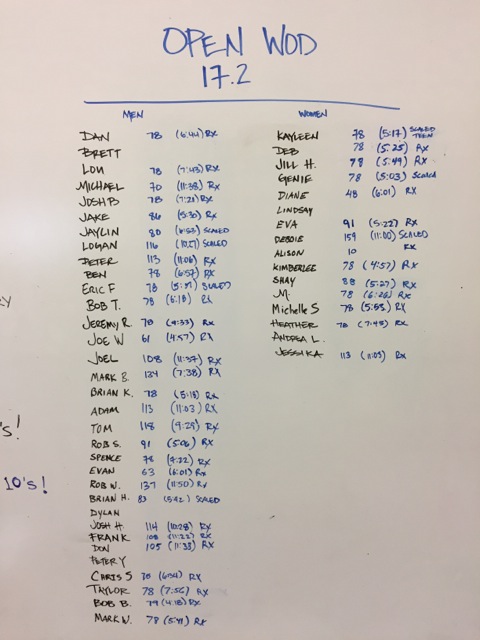 OPEN WOD
17.2
MEN
DAN 78 (6:44) RX
BRETT
LOU 78 (7:43) RX
MICHAEL 70 (11:38) RX
JOSH B 78 (7:21) RX
JAKE 86 (5:30) RX
JAYLIN 80 (6:53) SCALED
LOMAN 116 (10:27) SCALED
PETER 113 (11:06) RX
BEN 78 (6:57) RX
ERIC F 78 (5:31) SCALED
BOB T. 78 (6:18) RX
JEREMY R. 78 (4:33) RX
JOE W 61 (4:57) RX
JOEL 108 (11:37) RX
MARK B. 134 (7:38) RX
BRIAN K. 78 (5:18) RX
ADAM 113 (11:03) RX
TOM 118 (9:29) RX
ROB S. 91 (5:06) RX
SPENCE 78 (4:22) RX
EVAN 63 (6:01) RX
ROB W. 137 (11:50) RX
BRIAN H. 83 (5:42) SCALED
DYLAN
JOSH H. 114 (10:28) RX
FRANK 108 (11:22) RX
DON 105 (11:33) RX
PETER Y
CHRIS S (6:54) RX
TAYLOR 78 (7:56) RX
BOB B. 79 (4:18) RX
MARK W. 78 (5:41) RX
WOMEN
KAYLEEN 78 (5:17) SCALED TEEN
DEB 78 (5:25) RX
JILL H. 78 (5:49) RX
GENIE 78 (5:03) SCALED
DIANE 48 (6:01) RX
LINDSAY
EVA 91 (5:22) RX
DEBBIE 159 (11:00) SCALED
ALISON 10 RX
KIMBERLEE 78 (4:57) RX
SHAY 88 (5:27) RX
M. 78 (6:26) RX
Michelle S 78 (5:53) RX
HEATHER 78 (7:45) RX
ANDREA L.
JESSIKA 113 (11:03) RX
's!
10's!